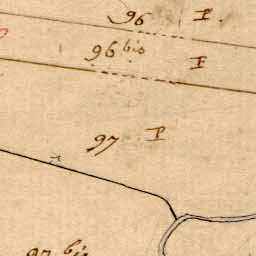 96 P
96 bis P
97 P
97 bis